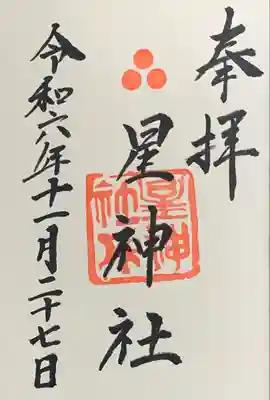 奉拝
星神社
星神社
令和六年十一月二十七日